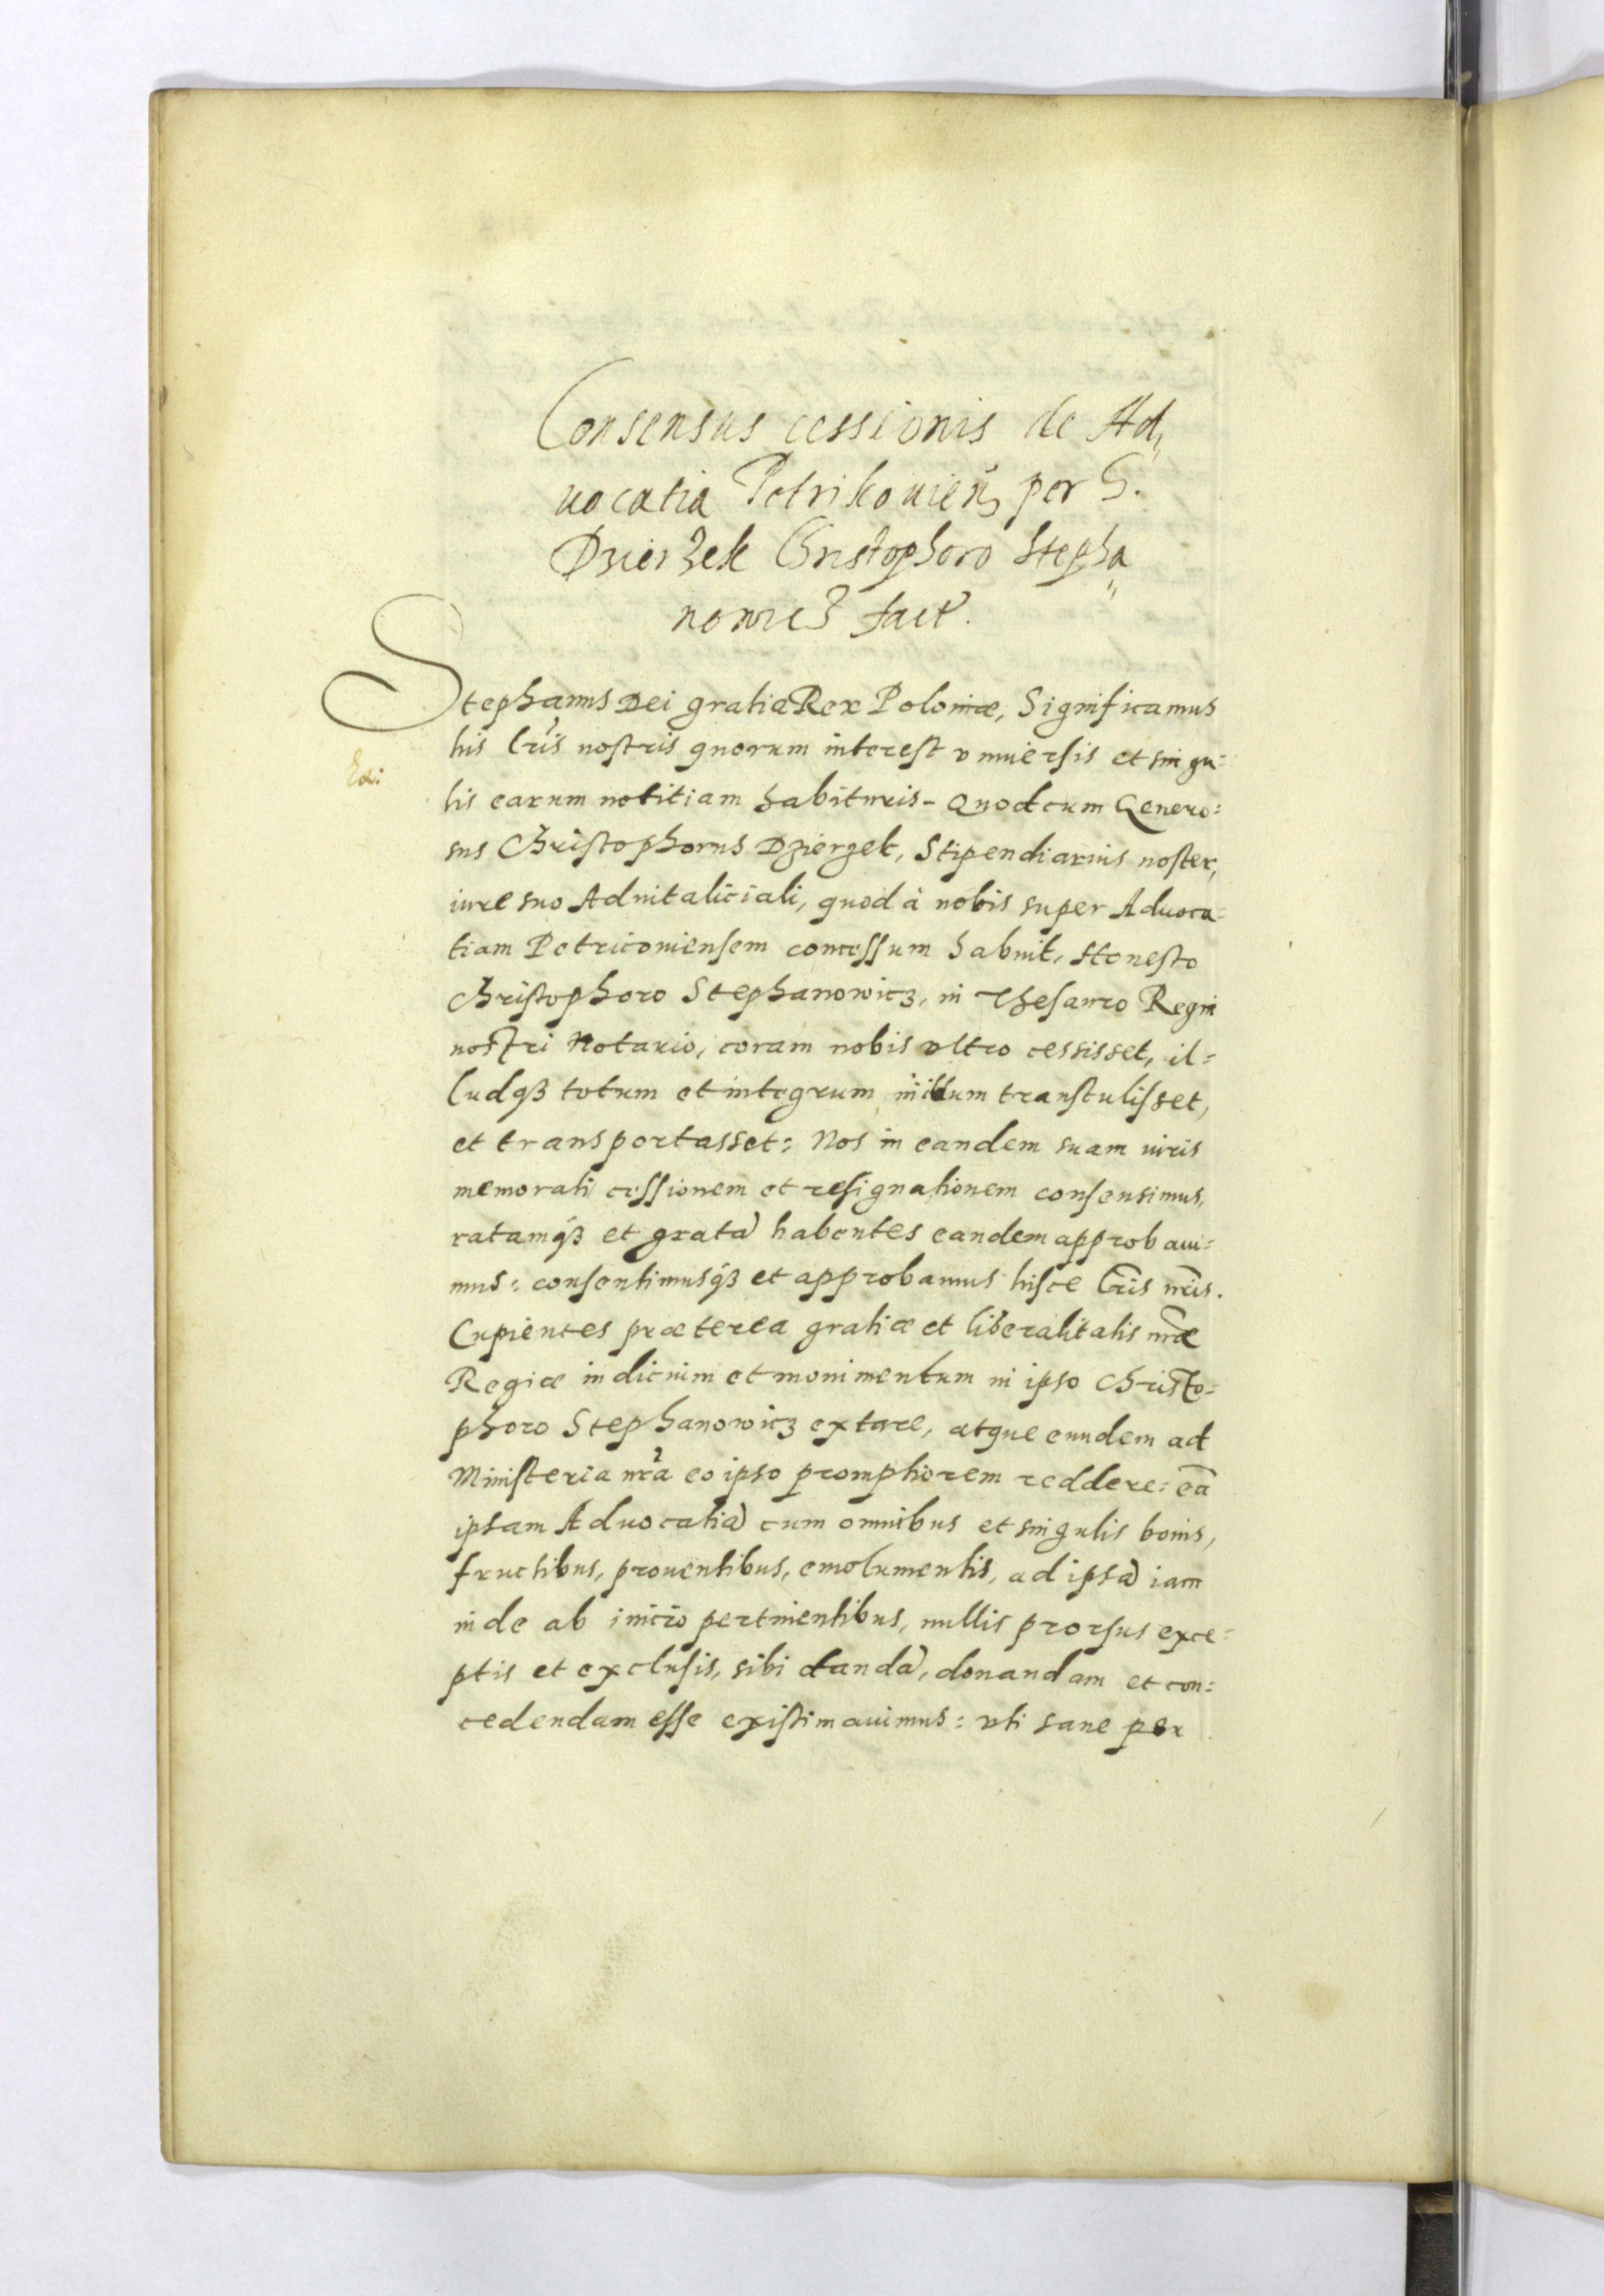 Consensus cessionis de Ad„
uocatia Petrikouien̄, per G.
Dzierzek Christophoro Stepha„
nowicz fact̃.
Stephanus Dei gratia Rex Poloniæ, Significamus
his l̃ris nostris quorum interest vniuersis et singu=
Ex:
lis earum notitiam habituris - Quod cum Genero=
sus Christophorus Dzierzek, Stipendiarius noster,
iure suo Aduitaliciali, quod à nobis super Aduoca=
tiam Petricouiensem concessum habuit, Honesto
Christophoro Stephanowicz, in Thesauro Regni
nostri Notario, coram nobis vltro cessisset, il=
ludqȝ totum et integrum in illum transtulisset,
et transportasset: Nos in eandem suam iuris
memorati cessionem et resignationem consensimus,
ratamqȝ et gratã habentes eandem approbaui=
mus: consentimusqȝ et approbamus hisce l̃ris nr̃is.
Cupientes præterea gratiæ et liberalitatis nr̃æ
Regiæ indicium et monimentum in ipso Christo=
phoro Stephanowicz extare, atque eundem ad
Ministeria nr̃a eo ipso promptiorem reddere: eã
ipsam Aduocatiã cum omnibus et singulis bonis,
fructibus, prouentibus, emolumentis, ad ipsã iam
inde ab initio pertinentibus, nullis prorsus exce=
ptis et exclusis, sibi dandã, donandam et con=
cedendam esse existimauimus: vti sane per